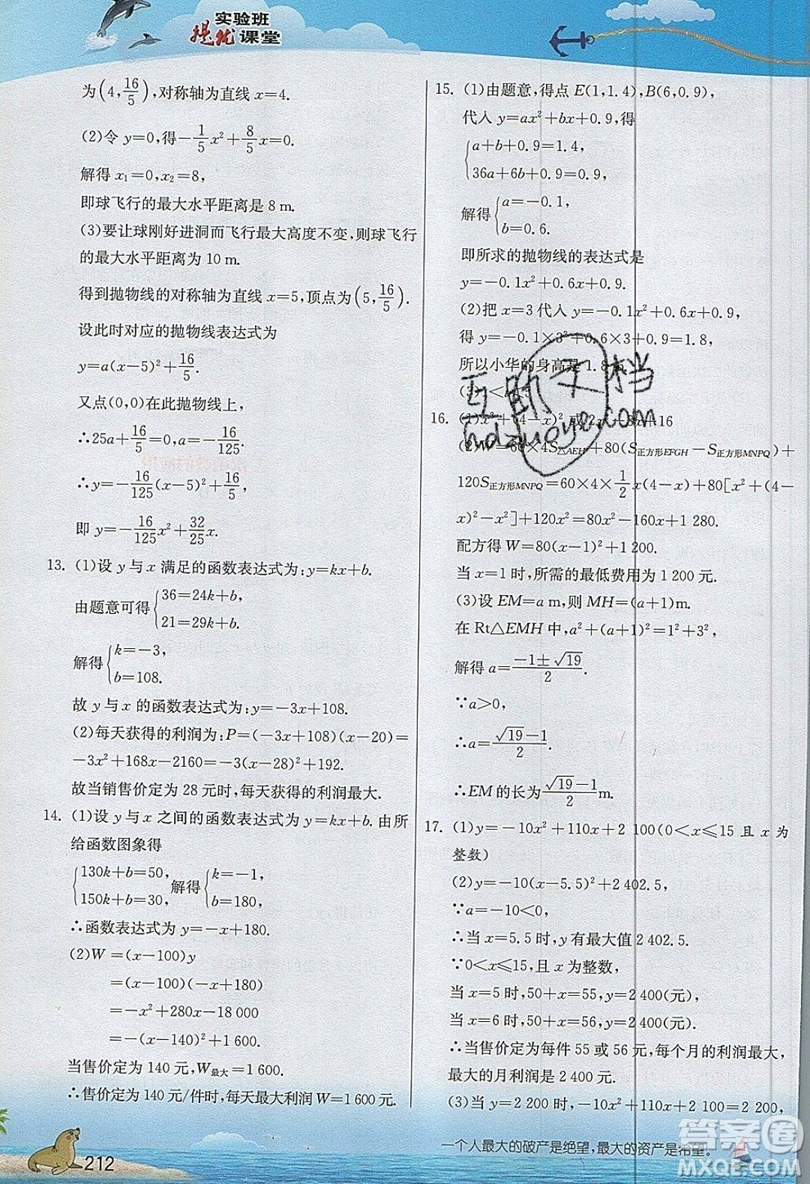 实验班
提优课堂
为(4,16/5),对称轴为直线 x=4.
(2)令 y=0,得-1/5x²+8/5x=0.
解得 x₁=0,x₂=8,
即球飞行的最大水平距离是 8 m.
(3)要让球刚好进洞而飞行最大高度不变,则球飞行
的最大水平距离为 10 m.
得到抛物线的对称轴为直线 x=5,顶点为(5,16/5).
设此时对应的抛物线表达式为
y=a(x-5)²+16/5.
又点(0,0)在此抛物线上,
∴25a+16/5=0.∴a=-16/125.
∴y=-16/125(x-5)²+16/5,
即 y=-16/125x²+32/25x.
13. (1)设 y 与 x 满足的函数表达式为:y=kx+b.
由题意可得{36=24k+b,
21=29k+b.
解得{k=-3,
b=108.
故 y 与 x 的函数表达式为:y=-3x+108.
(2)每天获得的利润为:P=(-3x+108)(x-20)=
-3x²+168x-2160=-3(x-28)²+192.
故当销售价定为 28 元时,每天获得的利润最大.
14. (1)设 y 与 x 之间的函数表达式为 y=kx+b.由所
给函数图象得
{130k+b=50,
150k+b=30, 解得{k=-1,
b=180.
∴函数表达式为 y=-x+180.
(2)W=(x-100)y
=(x-100)(-x+180)
=-x²+280x-18 000
=-(x-140)²+1 600.
当售价定为 140 元,W最大=1 600.
∴售价定为 140 元/件时,每天最大利润 W=1 600 元.
15. (1)由题意,得点 E(1,1.4),B(6,0.9),
代入 y=ax²+bx+0.9,得
{a+b+0.9=1.4,
36a+6b+0.9=0.9.
解得{a=-0.1,
b=0.6.
即所求的抛物线的表达式是
y=-0.1x²+0.6x+0.9.
(2)把 x=3 代入 y=-0.1x²+0.6x+0.9,
得 y=-0.1×3²+0.6×3+0.9=1.8,
所以小华的身高是 1.8
互助文档
hdzuoye.com
16. (1)x²+(4-x)²
(2)W=60×4S△AEH+80(S正方形EFGH-S正方形MNPQ)+
120S正方形MNPQ=60×4×1/2x(4-x)+80[x²+(4-
x)²-x²]+120x²=80x²-160x+1 280.
配方得 W=80(x-1)²+1 200.
当 x=1 时,所需的最低费用为 1 200 元.
(3)设 EM=a m,则 MH=(a+1) m.
在 Rt△EMH 中,a²+(a+1)²=3²,
解得 a=(-1±√19)/2.
∵a>0,
∴a=(√19-1)/2.
∴EM 的长为(√19-1)/2 m.
17. (1)y=-10x²+110x+2 100(0<x≤15 且 x 为
整数)
(2)y=-10(x-5.5)²+2 402.5,
∵a=-10<0,
∴当 x=5.5 时,y 有最大值 2 402.5.
∵0<x≤15,且 x 为整数,
当 x=5 时,50+x=55,y=2 400(元),
当 x=6 时,50+x=56,y=2 400(元).
∴当售价定为每件 55 或 56 元,每个月的利润最大,
最大的月利润是 2 400 元.
(3)当 y=2 200 时,-10x²+110x+2 100=2 200,
一个人最大的破产是绝望,最大的资产是希望。
212
答案圈
MXQE.COM